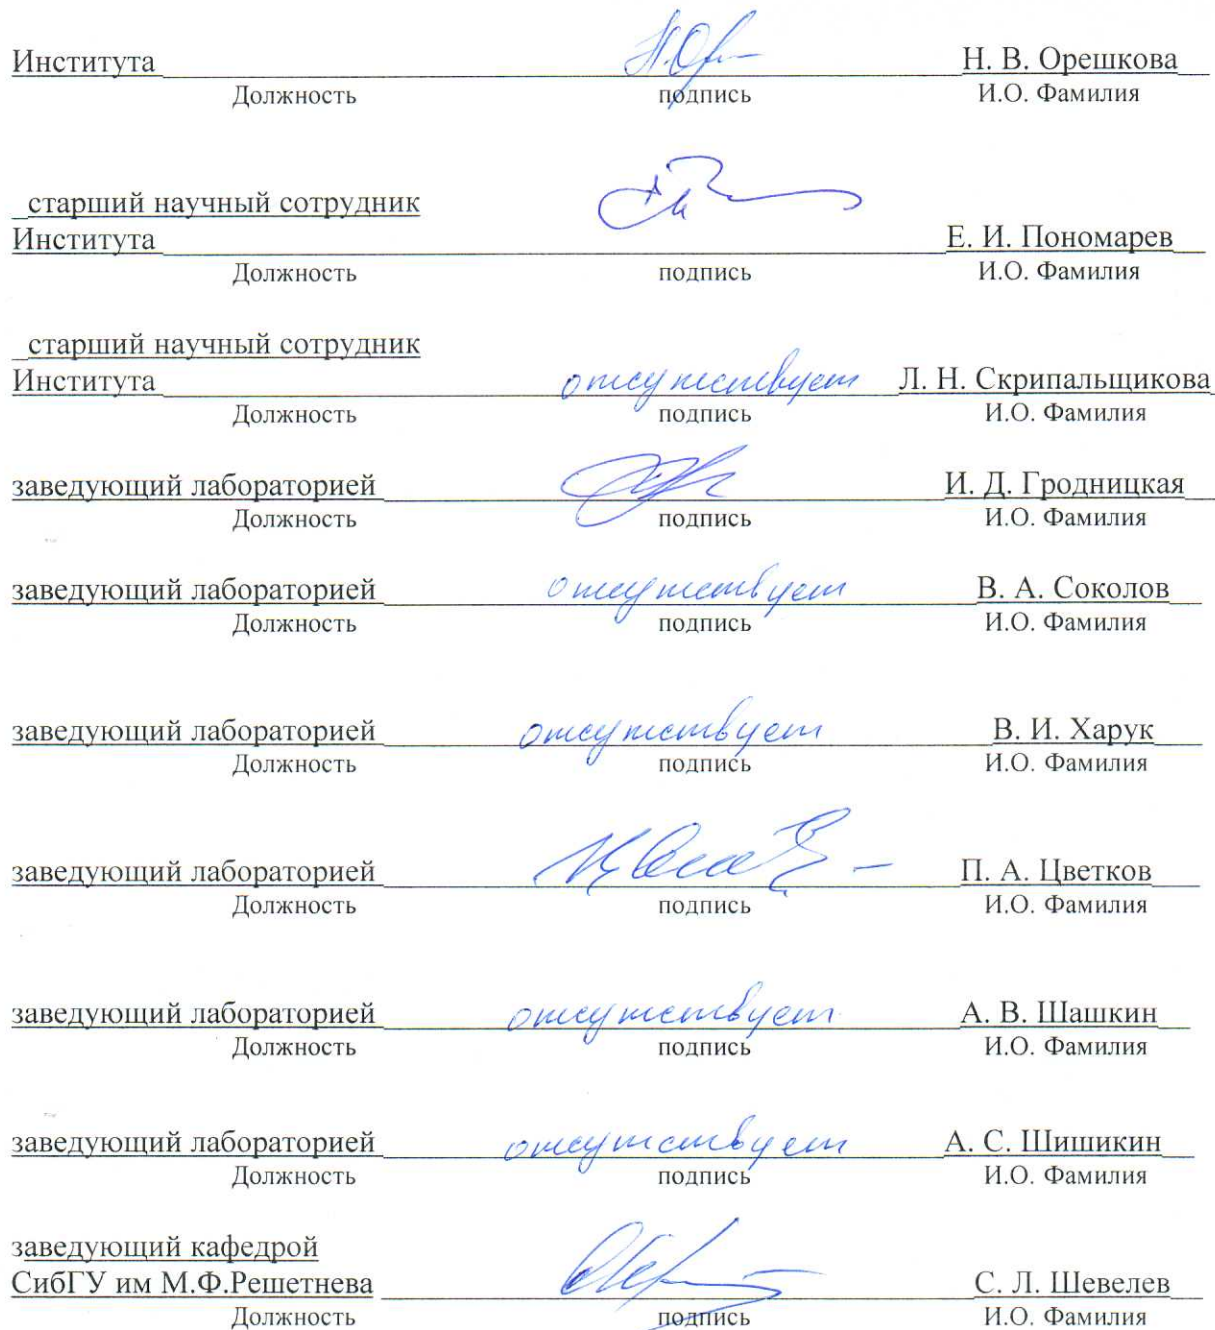 Института Н. В. Орешкова
Должность подпись И.О. Фамилия
старший научный сотрудник
Института Е. И. Пономарев
Должность подпись И.О. Фамилия
старший научный сотрудник
Института отсутствует Л. Н. Скрипальщикова
Должность подпись И.О. Фамилия
заведующий лабораторией И. Д. Гродницкая
Должность подпись И.О. Фамилия
заведующий лабораторией отсутствует В. А. Соколов
Должность подпись И.О. Фамилия
заведующий лабораторией отсутствует В. И. Харук
Должность подпись И.О. Фамилия
заведующий лабораторией П. А. Цветков
Должность подпись И.О. Фамилия
заведующий лабораторией отсутствует А. В. Шашкин
Должность подпись И.О. Фамилия
заведующий лабораторией отсутствует А. С. Шишикин
Должность подпись И.О. Фамилия
заведующий кафедрой
СибГУ им М.Ф.Решетнева С. Л. Шевелев
Должность подпись И.О. Фамилия